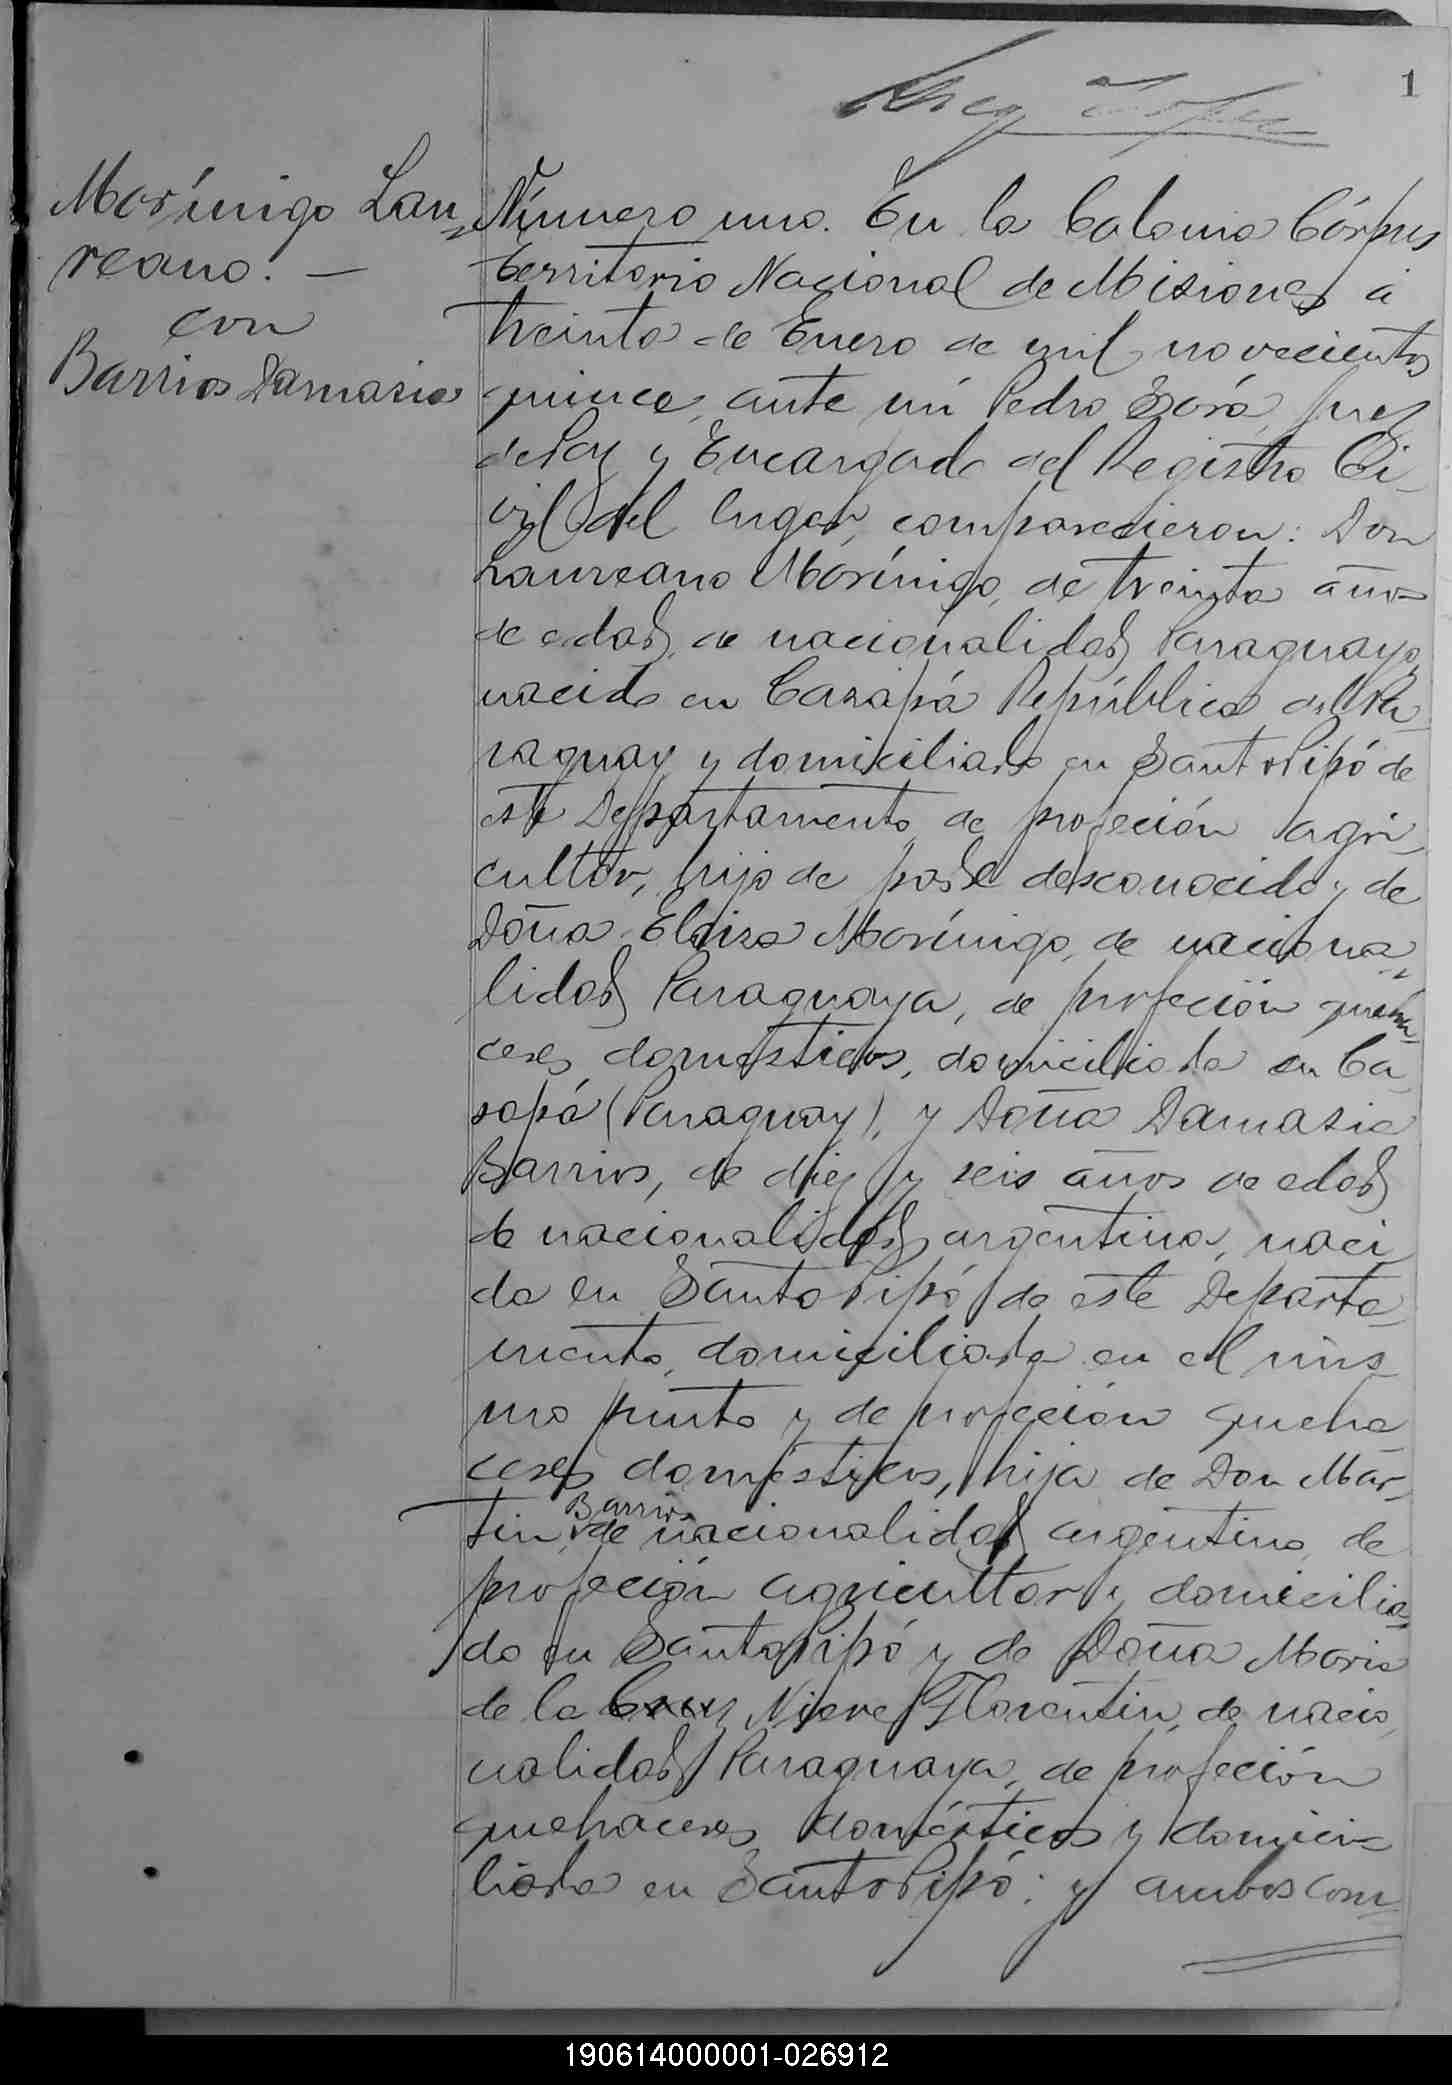 1
Morínigo Lau
reano. —
con
Barrios Damasia
Número uno. En la Colonia Córpus
Territorio Nacional de Misiones á
treinta de Enero de mil novecientos
quince, ante mí Pedro Juez
de Paz y Encargado del Registro Ci-
vil del lugar, comparecieron: Don
Laureano Morínigo, de treinta años
de edad, de nacionalidad Paraguayo,
nacido en Casapá República del Pa
raguay y domiciliado en Santo Pipó de
este Departamento, de profeción agri-
cultor, hijo de padre desconocido y de
Doña Eloisa Morínigo, de naciona-
lidad Paraguaya, de profeción queha-
ceres domésticos, domiciliada en Ca
sapá (Paraguay), y Doña Damasia
Barrios, de diez y seis años de edad
de nacionalidad argentina, naci
da en Santo Pipó de este Departa-
mento, domiciliada en el mis-
mo punto y de profeción queha
ceres domésticos, hija de Don Mar-
Barrios
tin, de nacionalidad argentino, de
profeción agricultor y domicilia-
do en Santo Pipó y de Doña Maria
de la Cruz Nieve Florentin, de nacio-
nalidad Paraguaya, de profeción
quehaceres domésticos y domici-
liada en Santo Pipó: y ambos com
190614000001-026912